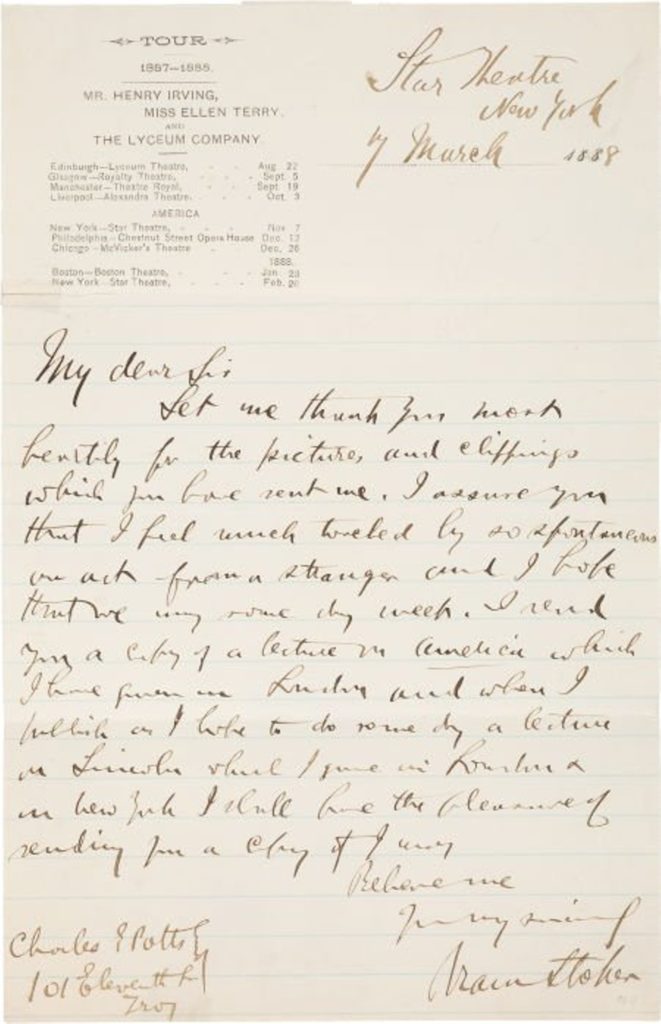 TOUR
1887-1888.
MR. HENRY IRVING,
MISS ELLEN TERRY,
AND
THE LYCEUM COMPANY
Edinburgh—Lyceum Theatre, Aug. 22
Glasgow—Royalty Theatre, Sept. 5
Manchester—Theatre Royal, Sept. 19
Liverpool—Alexandra Theatre, Oct. 3
AMERICA
New York—Star Theatre, Nov. 7
Philadelphia—Chestnut Street Opera House Dec. 12
Chicago—McVicker's Theatre Dec. 26
1888.
Boston—Boston Theatre, Jan. 23
New York—Star Theatre, Feb. 20
Star Theatre
New York
7 March 1888
My dear Sir
Let me thank you most
heartily for the pictures and clippings
which you have sent me. I assure you
that I feel much touched by so spontaneous
an act from a stranger and I hope
that we may some day meet. I send
you a copy of a lecture on America which
I have given in London and when I
publish as I hope to do some day a lecture
on Lincoln which I gave in London &
in New York I shall have the pleasure of
sending you a copy if I may
Believe me
Yours very sincerely
Bram Stoker
Charles Potts
101 Eleventh St
Troy